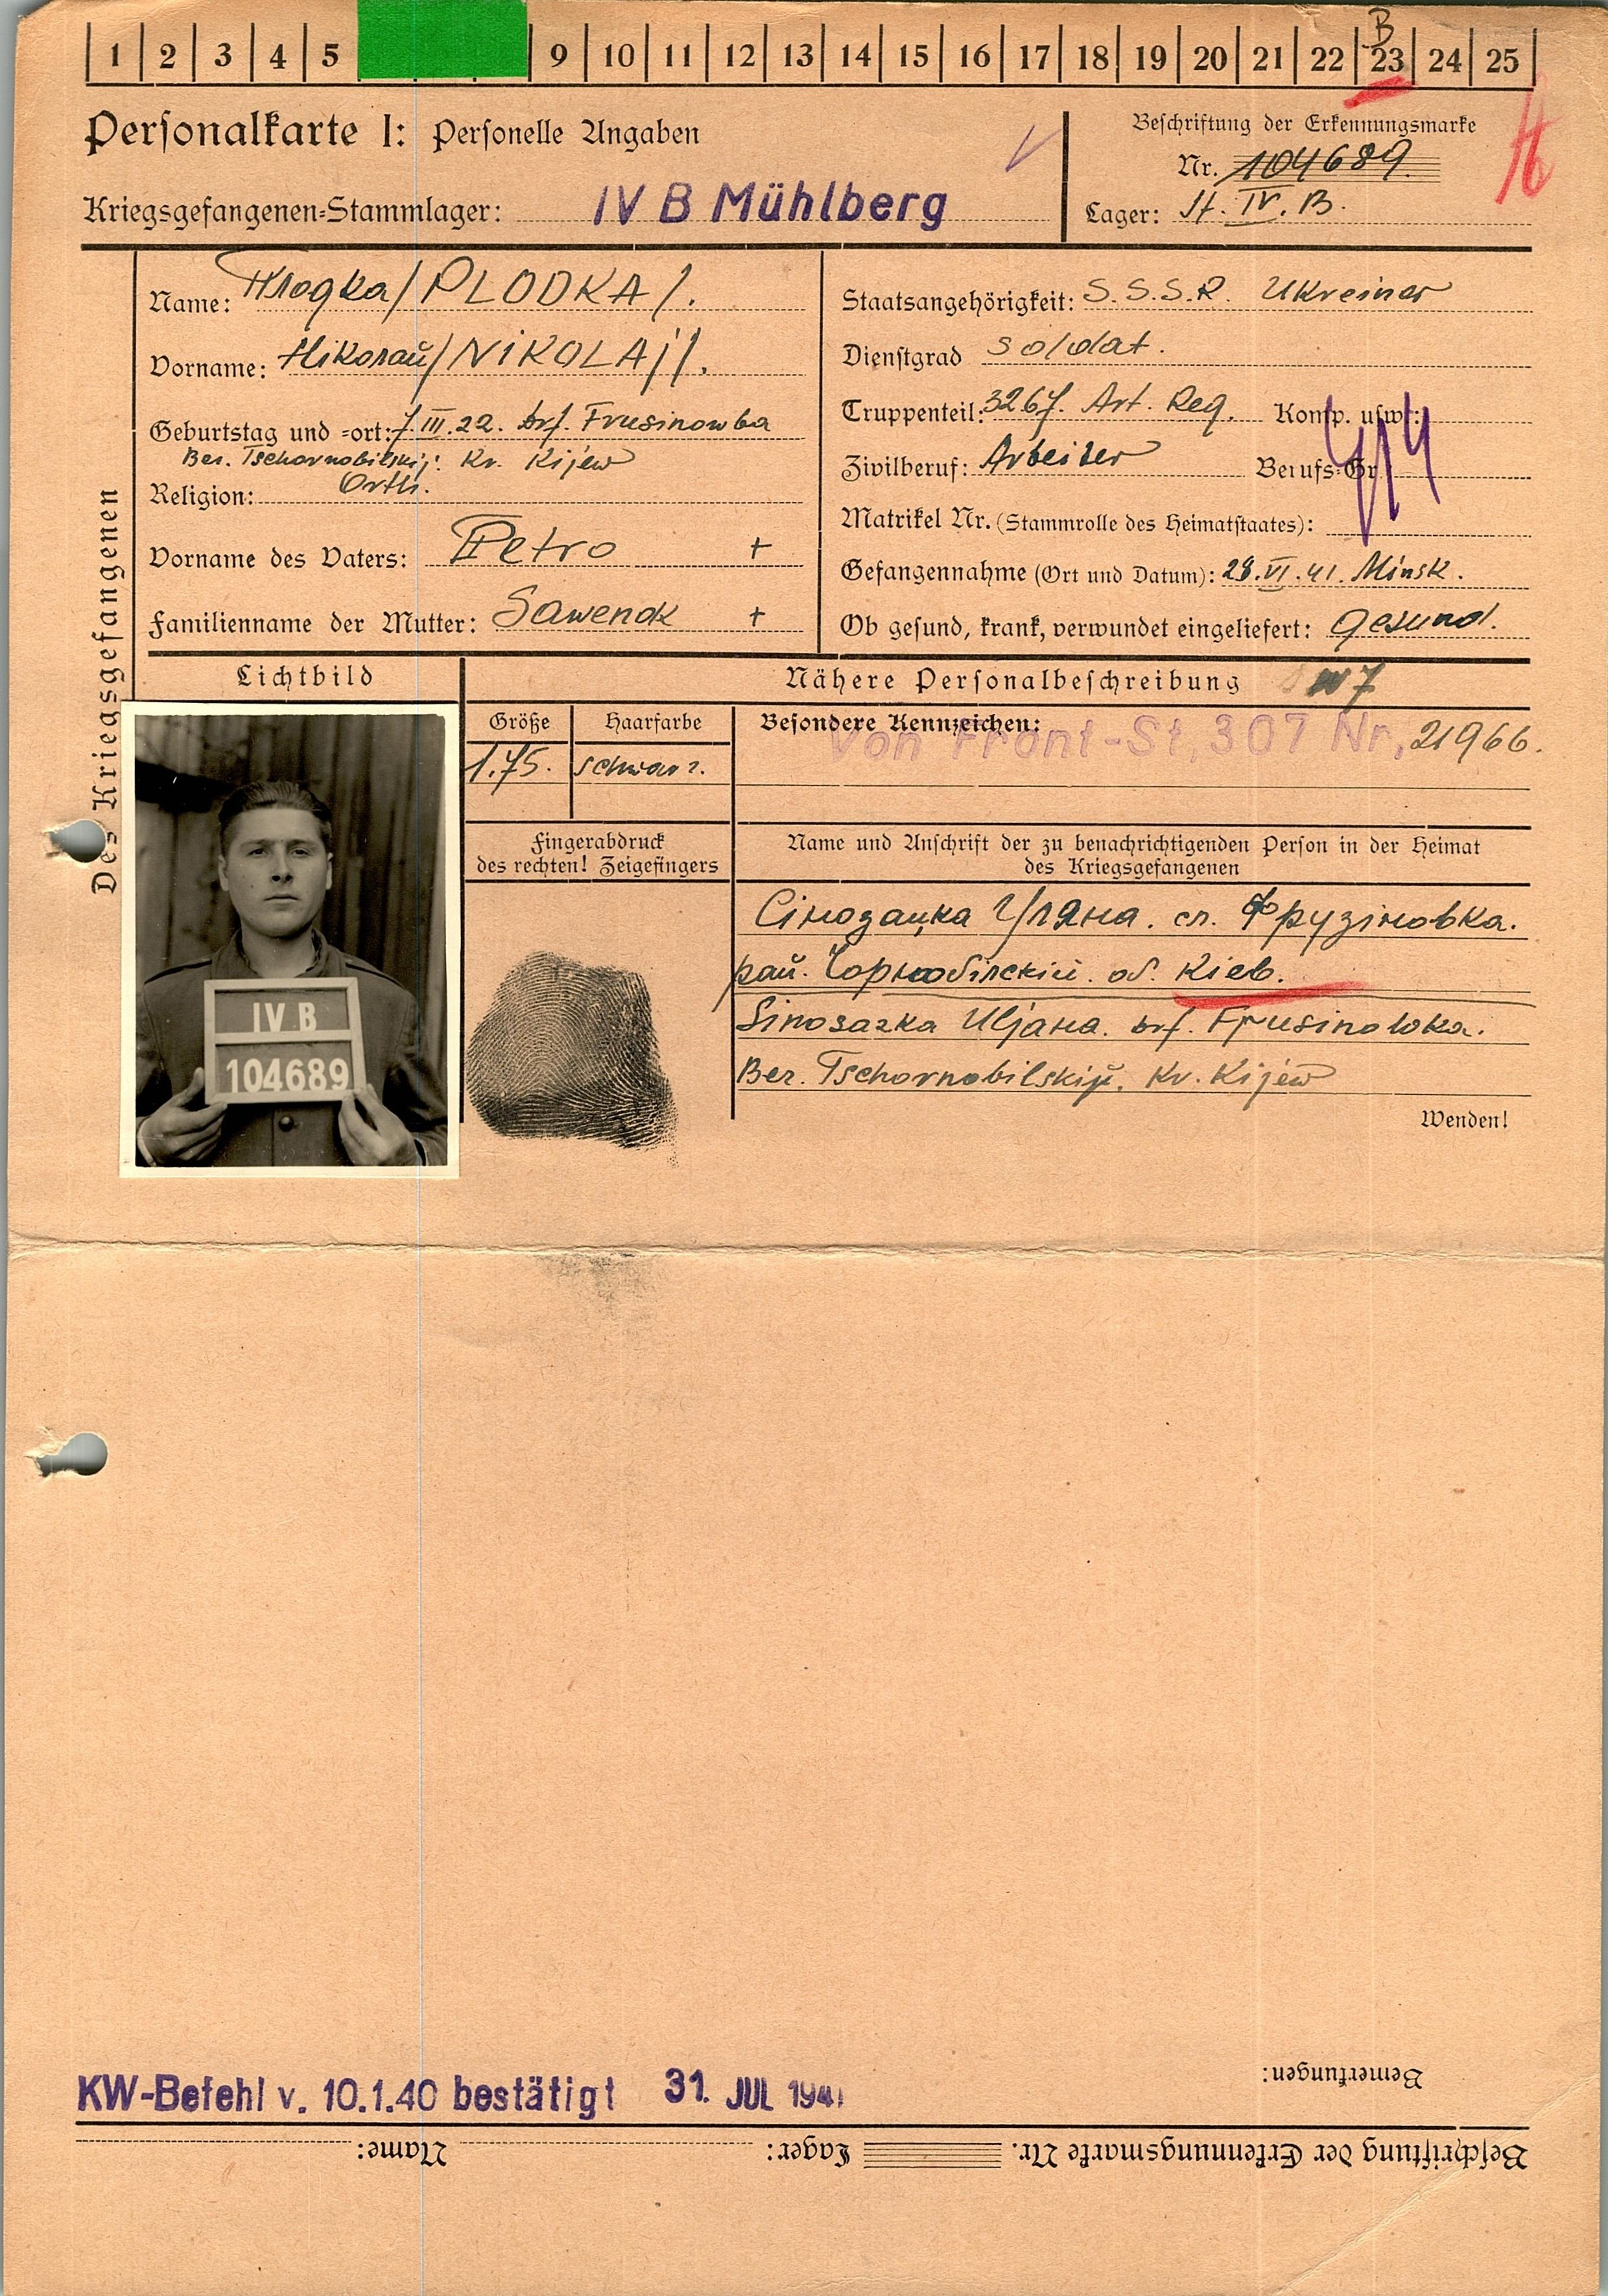 1 2 3 4 5 9 10 11 12 13 14 15 16 17 18 19 20 21 22 23 24 25
B
Personalkarte I: Personelle Angaben
Beschriftung der Erkennungsmarke
Nr. 104689.
Kriegsgefangenen-Stammlager: IV B Mühlberg
Lager: St. IV. B.
Des Kriegsgefangenen
Name: Плодка /PLODKA/.
Vorname: Николай /NIKOLAJ/.
Geburtstag und -ort: 7.III.22. Drf. Frusinowka
Ber. Tschornobilskij. Kr. Kijew
Religion: Orth.
Vorname des Vaters: Petro +
Familienname der Mutter: Sawenok +
Staatsangehörigkeit: S.S.S.R. Ukreiner
Dienstgrad Soldat.
Truppenteil: 3267. Art. Reg. Komp. usw.:
Zivilberuf: Arbeiter Berufs-Gr.:
Matrikel Nr. (Stammrolle des Heimatstaates):
Gefangennahme (Ort und Datum): 28.VI.41. Minsk.
Ob gesund, krank, verwundet eingeliefert: gesund.
Lichtbild
IV B
104689
Nähere Personalbeschreibung
Größe Haarfarbe
1.75. schwarz.
Besondere Kennzeichen:
Von Front-St, 307 Nr, 21966.
Fingerabdruck
des rechten! Zeigefingers
Name und Anschrift der zu benachrichtigenden Person in der Heimat
des Kriegsgefangenen
Сінозацка Уляна. сл. Фрузіновка.
рай. Чорнобілскій. об. Кіев.
Sinosazka Uljana. Drf. Frusinowka.
Ber. Tschornobilskij. Kr. Kijew
Wenden!
Bemerkungen:
KW-Befehl v. 10.1.40 bestätigt 31. JUL 1941
Beschriftung der Erkennungsmarke Nr. Lager: Name: